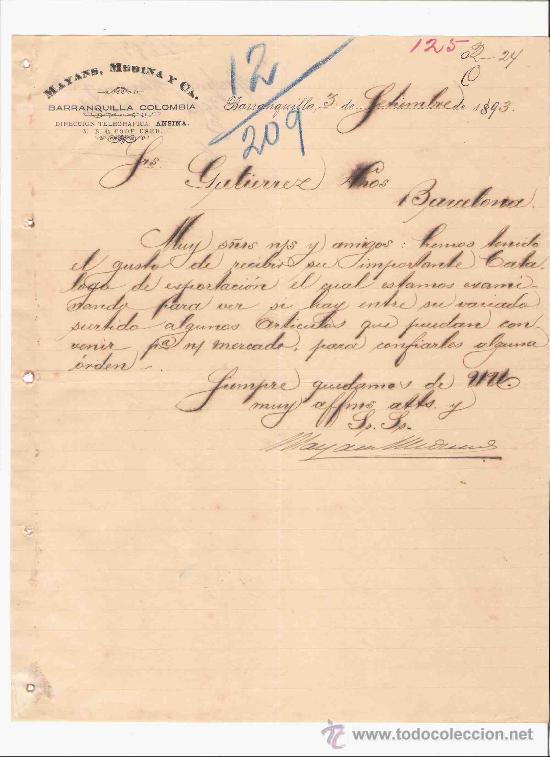 125 R-24
C
12/209
MAYANS, MEDINA Y CA.
BARRANQUILLA COLOMBIA
DIRECCION TELEGRAFICA. ANSINA.
A. B. C. CODE USED.
Barranquilla, 3 de Setiembre de 1893.
Srs. Gutierrez Hnos
Barcelona.
Muy sñres n/s y amigos: hemos tenido
el gusto de recibir su importante Cata-
logo de esportacion el qual estamos exami-
nando para ver si hay entre su variado
surtido algunos articulos que puedan con-
venir pa n/ mercado, para confiarles alguna
órden.
Siempre quedamos de
muy affms atts. y
Ss. Ss.
Mayans Medina
todocoleccion
www.todocoleccion.net